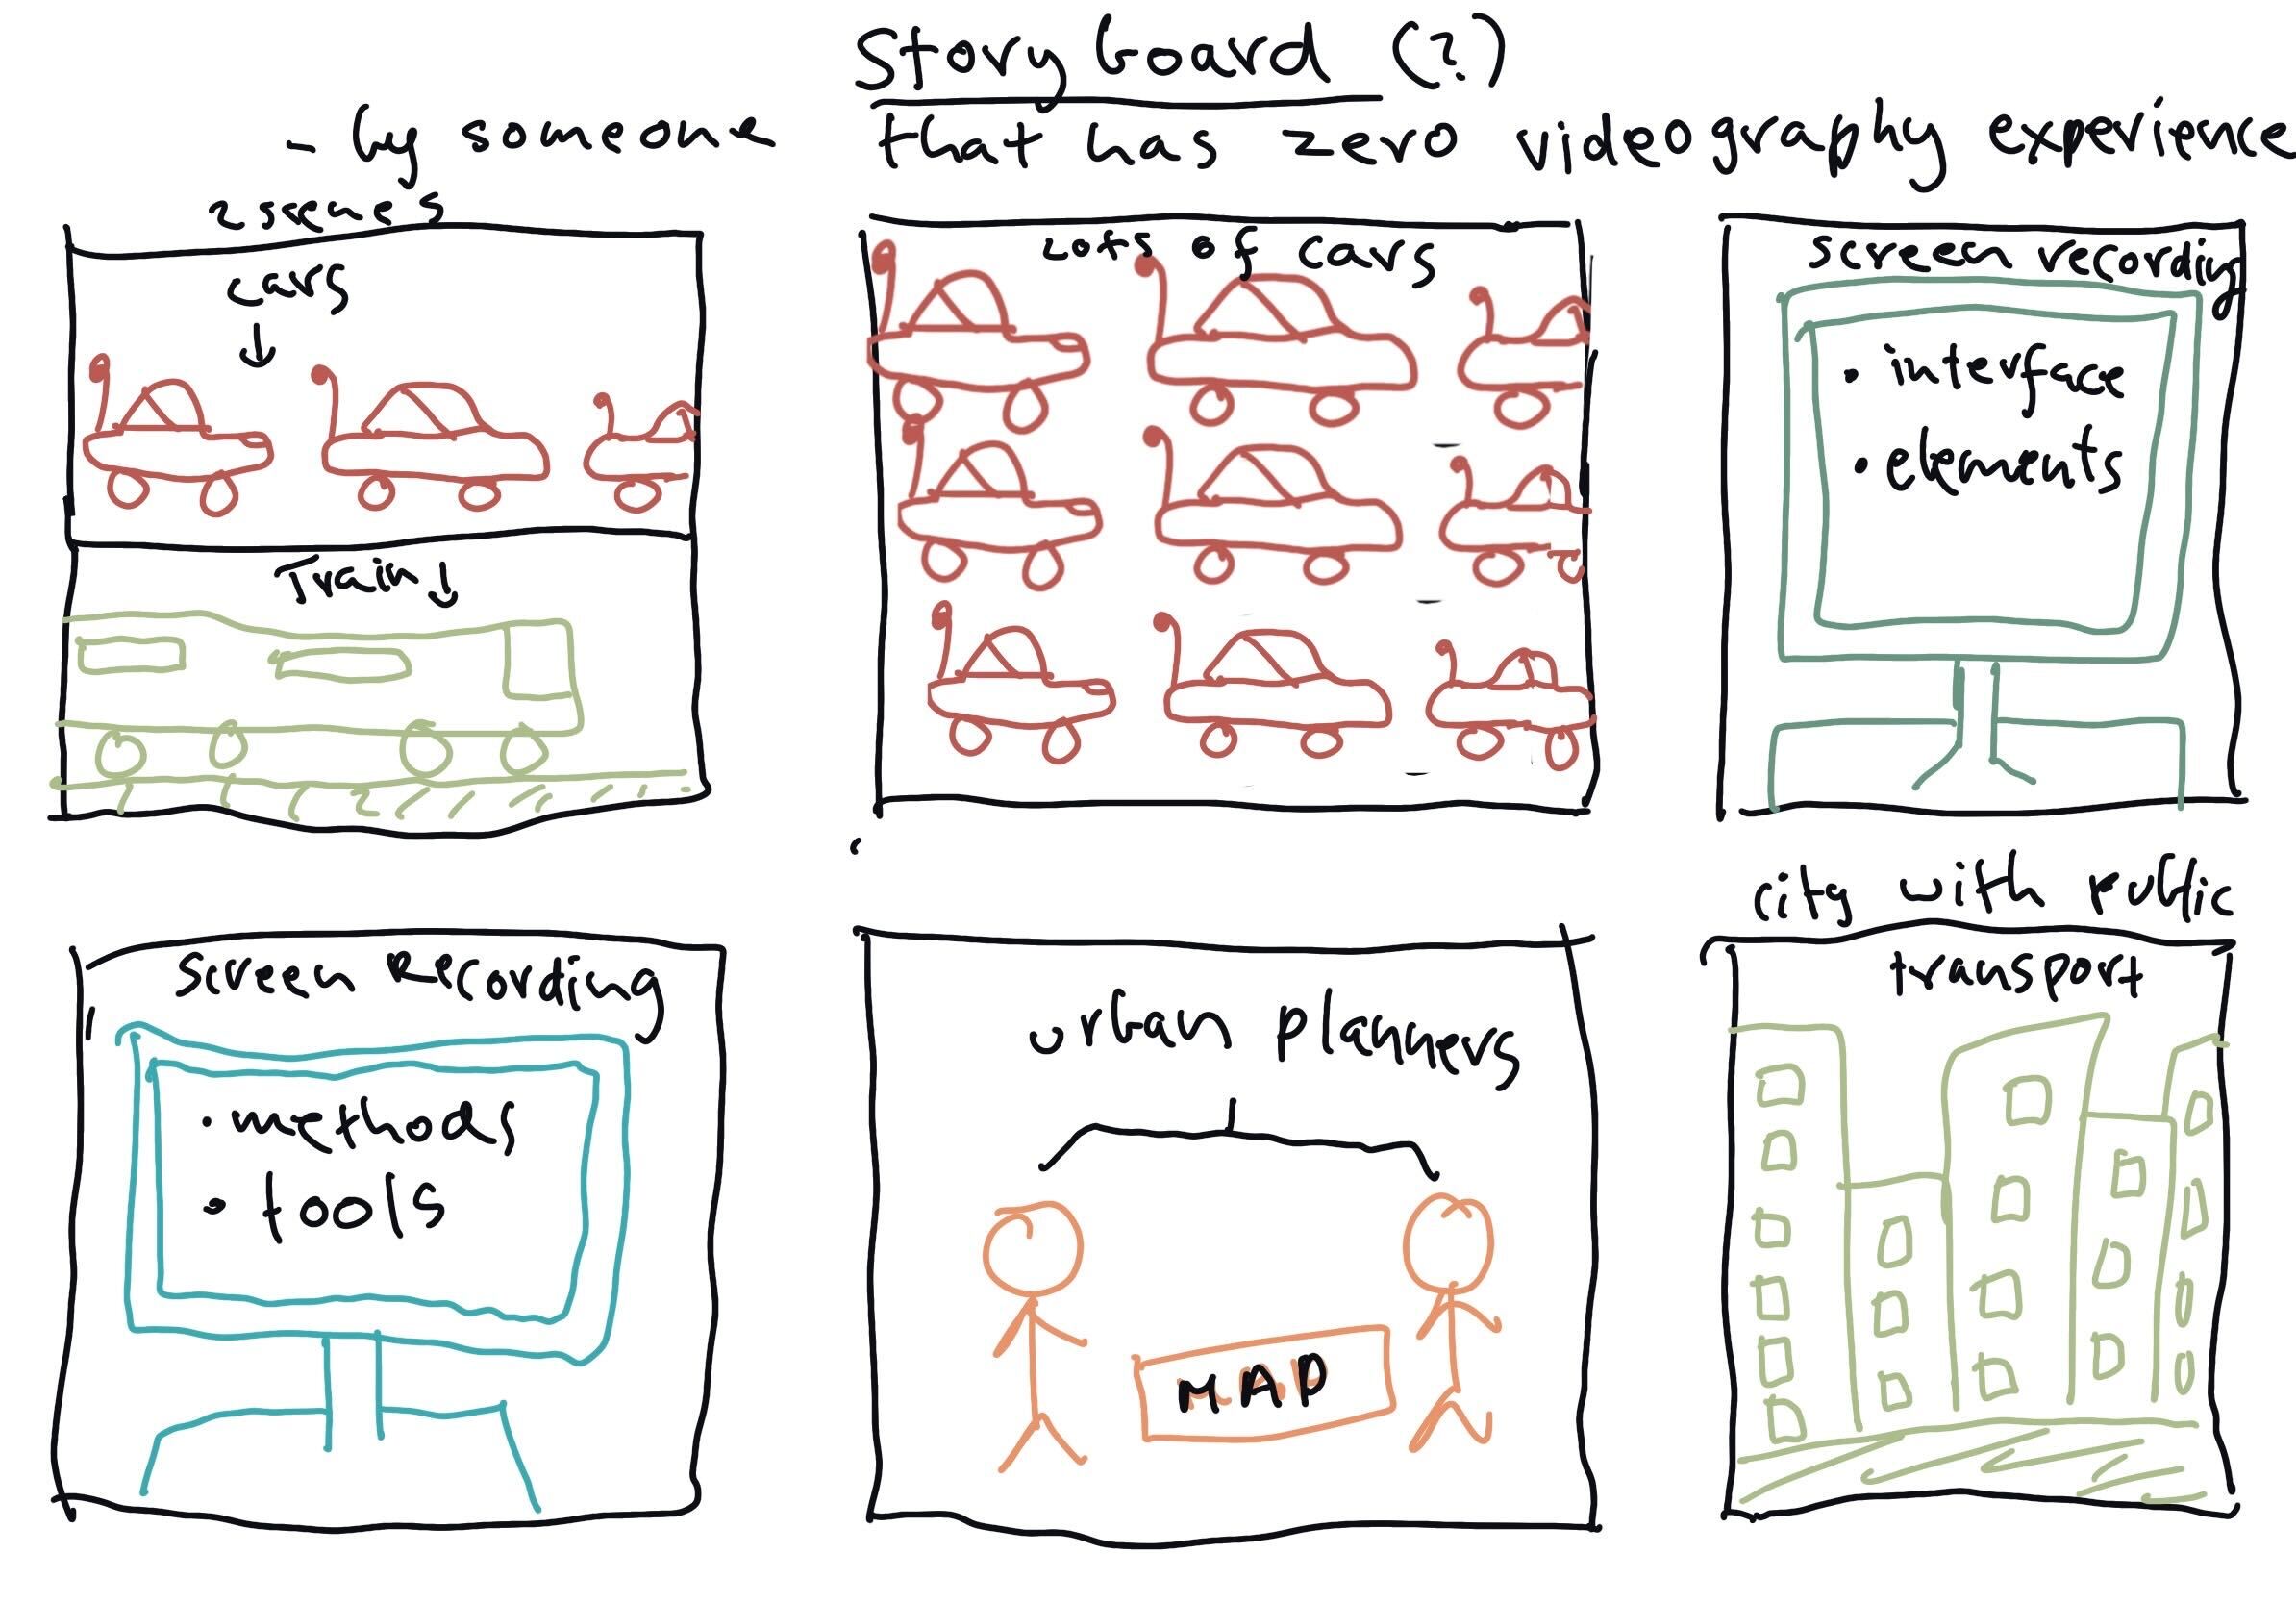 Storyboard (?)
- by someone that has zero videography experience
2 scenes
cars
Train
Lots of cars
screen recording
• interface
• elements
screen Recording
• methods
• tools
urban planners
MAP
city with public
transport